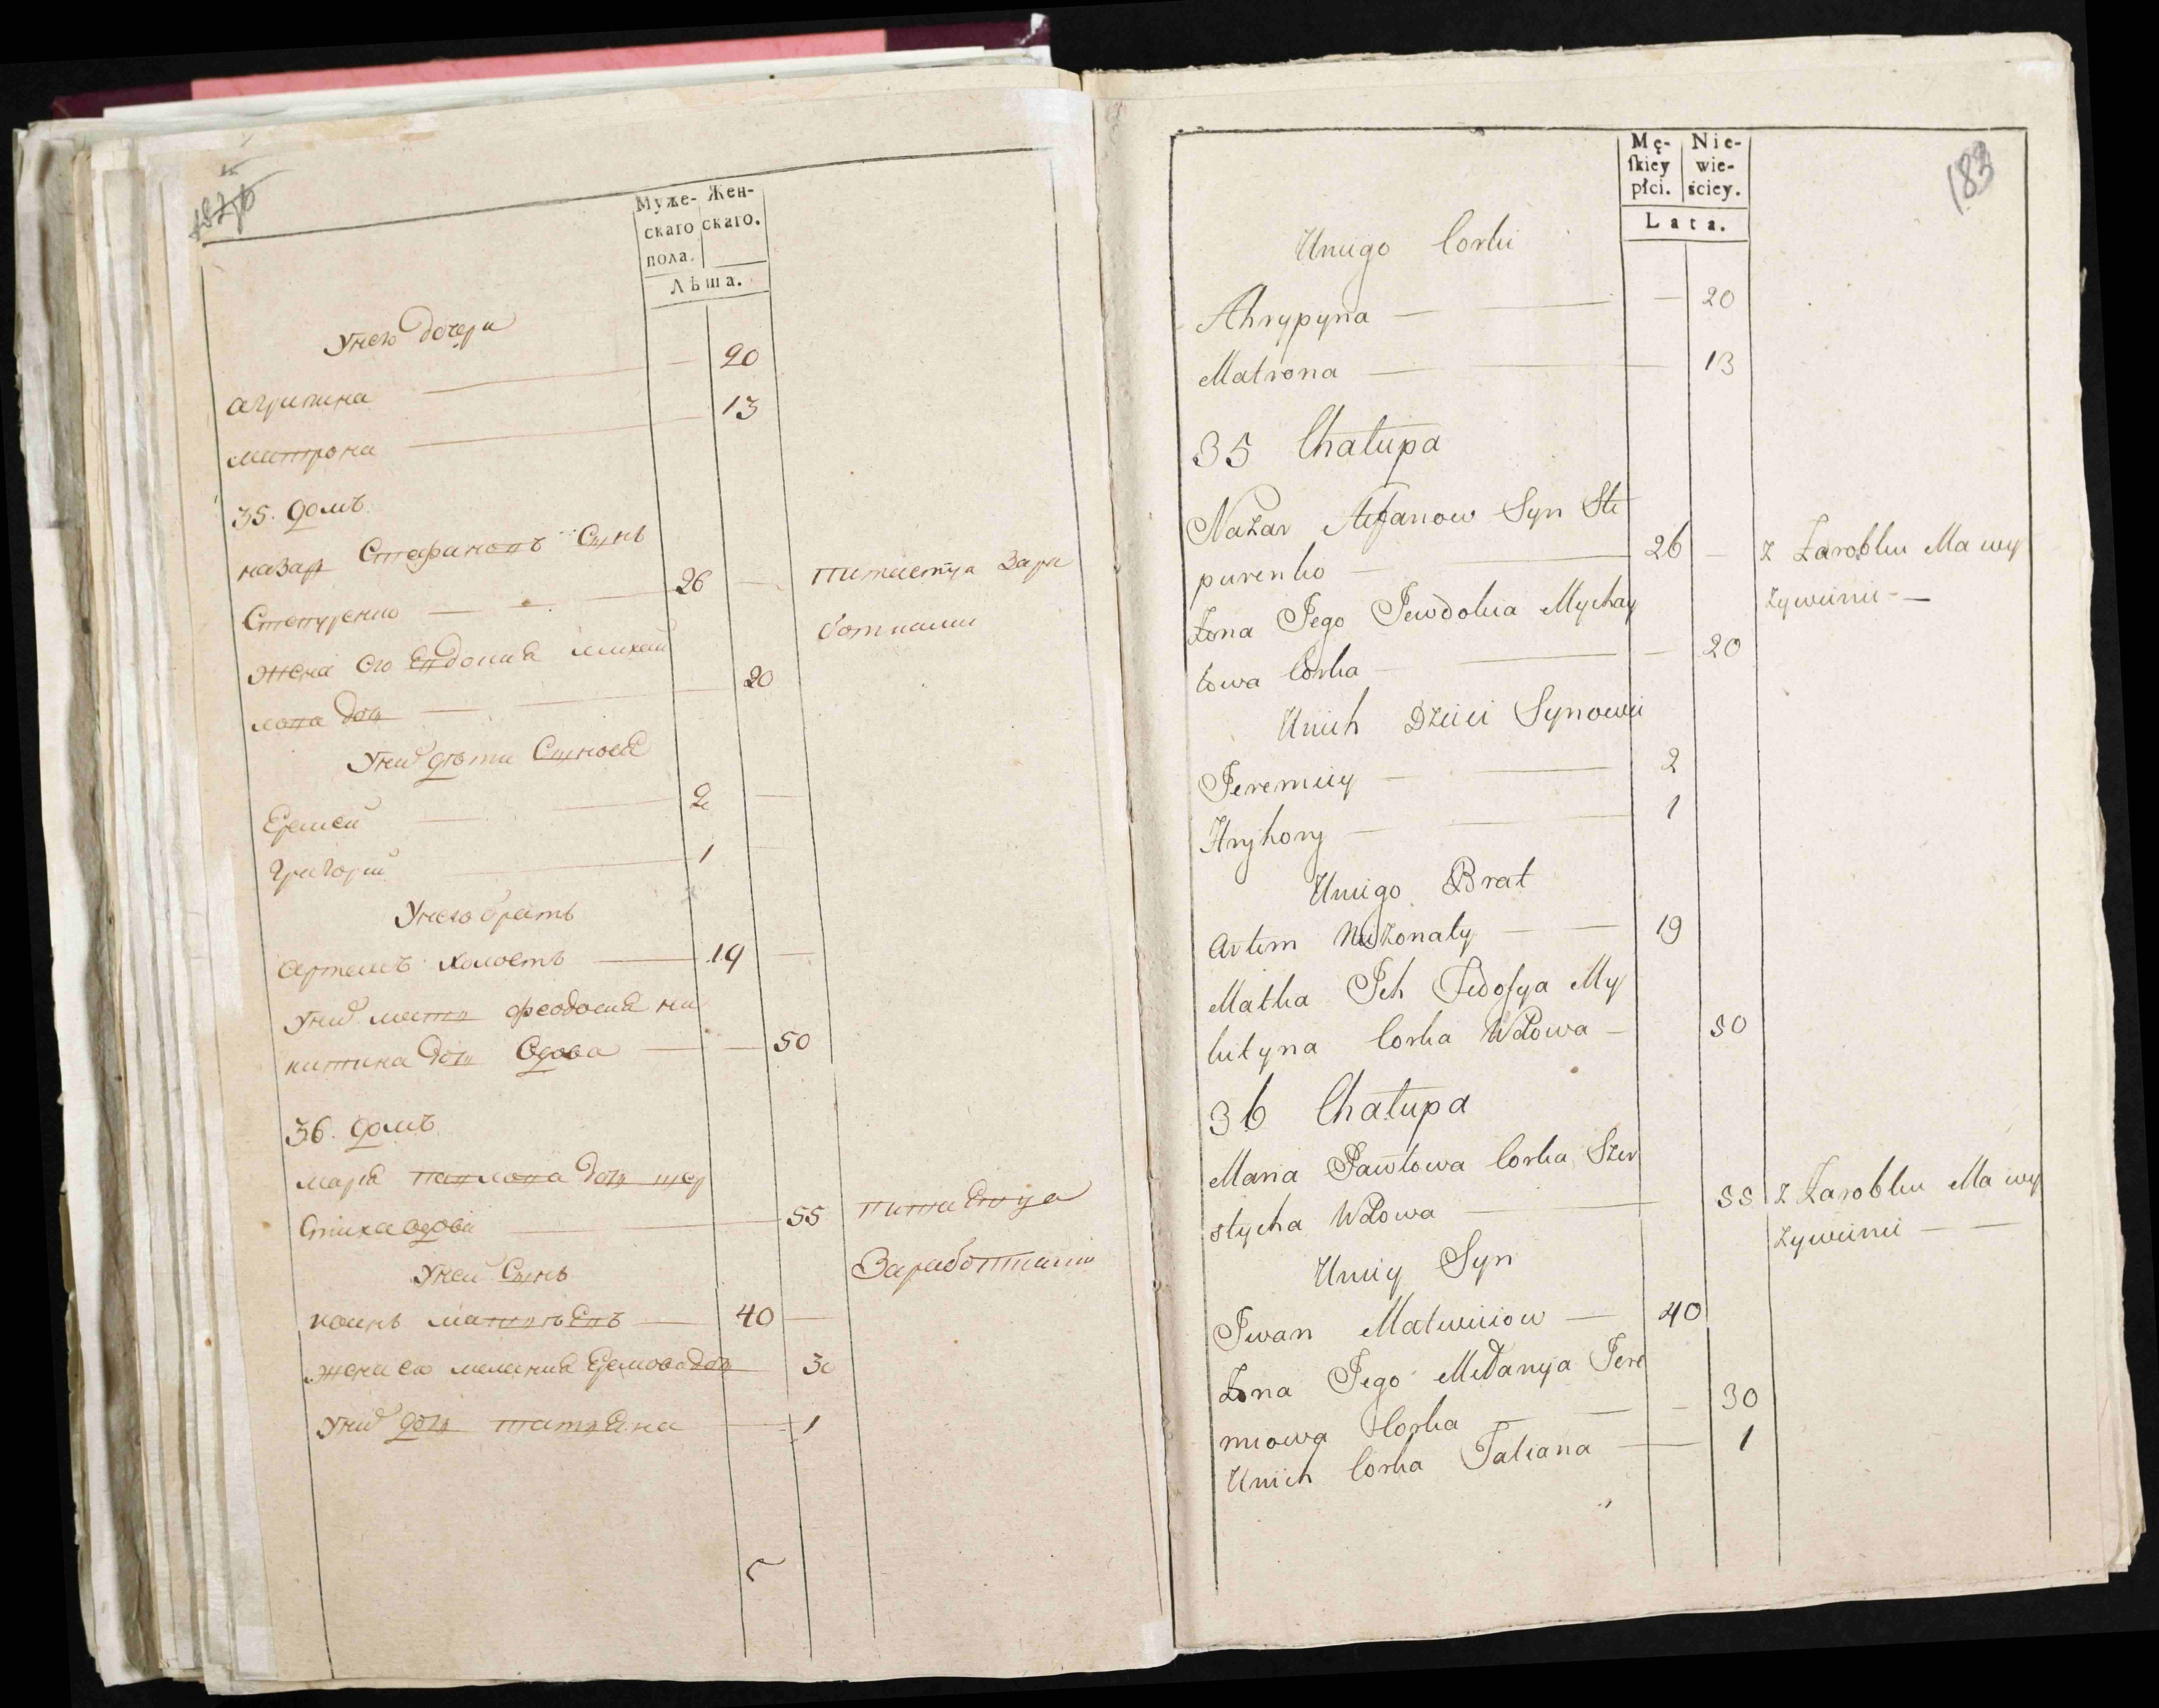 Муже-
скаго
пола.
Жен-
скаго.
Лѣта.
Унего дочери
Агрипина — — 20
Матрона — — 13
35. домъ
Назар Стефановъ Сынъ
Степуренко — — 26 — питается Зара
ботками
Жена его Евдокия михай
лова доч — — 20
Уних дѣти Сыновя
Еремей — 2 —
Григорий — 1 —
Унего братъ
Артемъ холостъ — 19 —
Уних мать феодосия ни
китина доч вдова — — 50
36. домъ
Мария павлова доч шер
стиха вдова — 55 питаеця
Заработками
Уней Сынъ
Іоанъ матвѣевъ — 40 —
жена его мелания Еремова доч 30
Уних доч татяна — 1
183
Mę-
ſkiey
płci.
Nie-
wie-
ściey.
Lata.
Uniego Corki
Ahrypyna — — — 20
Matrona — — 13
35 Chałupa
Nazar Stefanow Syn Ste
purenko — 26 — z Zarobku Ma wy
żywienie —
Żona Jego Jewdokia Mychay
łowa Corka — — — 20
Unich Dzieci Synowie
Jeremiey — — 2
Hryhory — — 1
Uniego Brat
Artem Nieżonaty — — 19
Matka Ich Fedoſya My
kityna Corka Wdowa — 50
36 Chałupa
Maria Pawłowa Corka Szer
stycha Wdowa — — 55 z Zarobku Ma wy
żywienie — —
Uniey Syn
Iwan Matwiciow — 40
Żona Jego Mełanyja Jere
miowa Corka — — — 30
Unich Corka Tatiana — 1